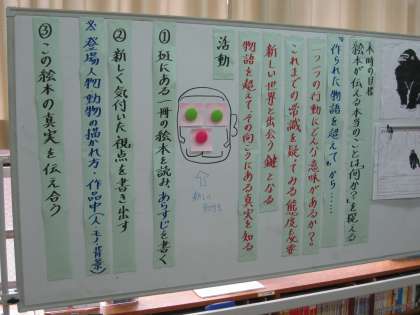 本時の目標
絵本が伝える本当のことは「何か?」を捉える
作られた物語を超えてから……
一つ一つの行動にどんな意味があるか?
これまでの常識を疑ってみる態度必要
新しい世界と出会う鍵となる
物語を超えてその向こうにある真実を知る
活動
①班にある一冊の絵本を読み、あらすじを書く
②新しく気付いた視点を書き出す
※登場人物・動物の描かれ方・作品中(人・モノ・背景)
③この絵本の真実を伝え合う
新しい